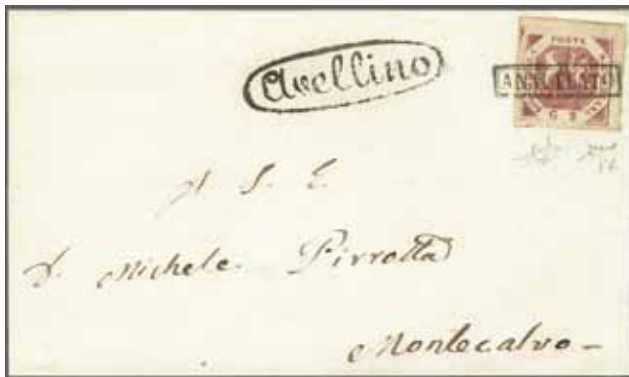 Avellino
POSTA
ANNULLATO
G 2
A S. E.
D. Michele Pirrotta
Montecalvo